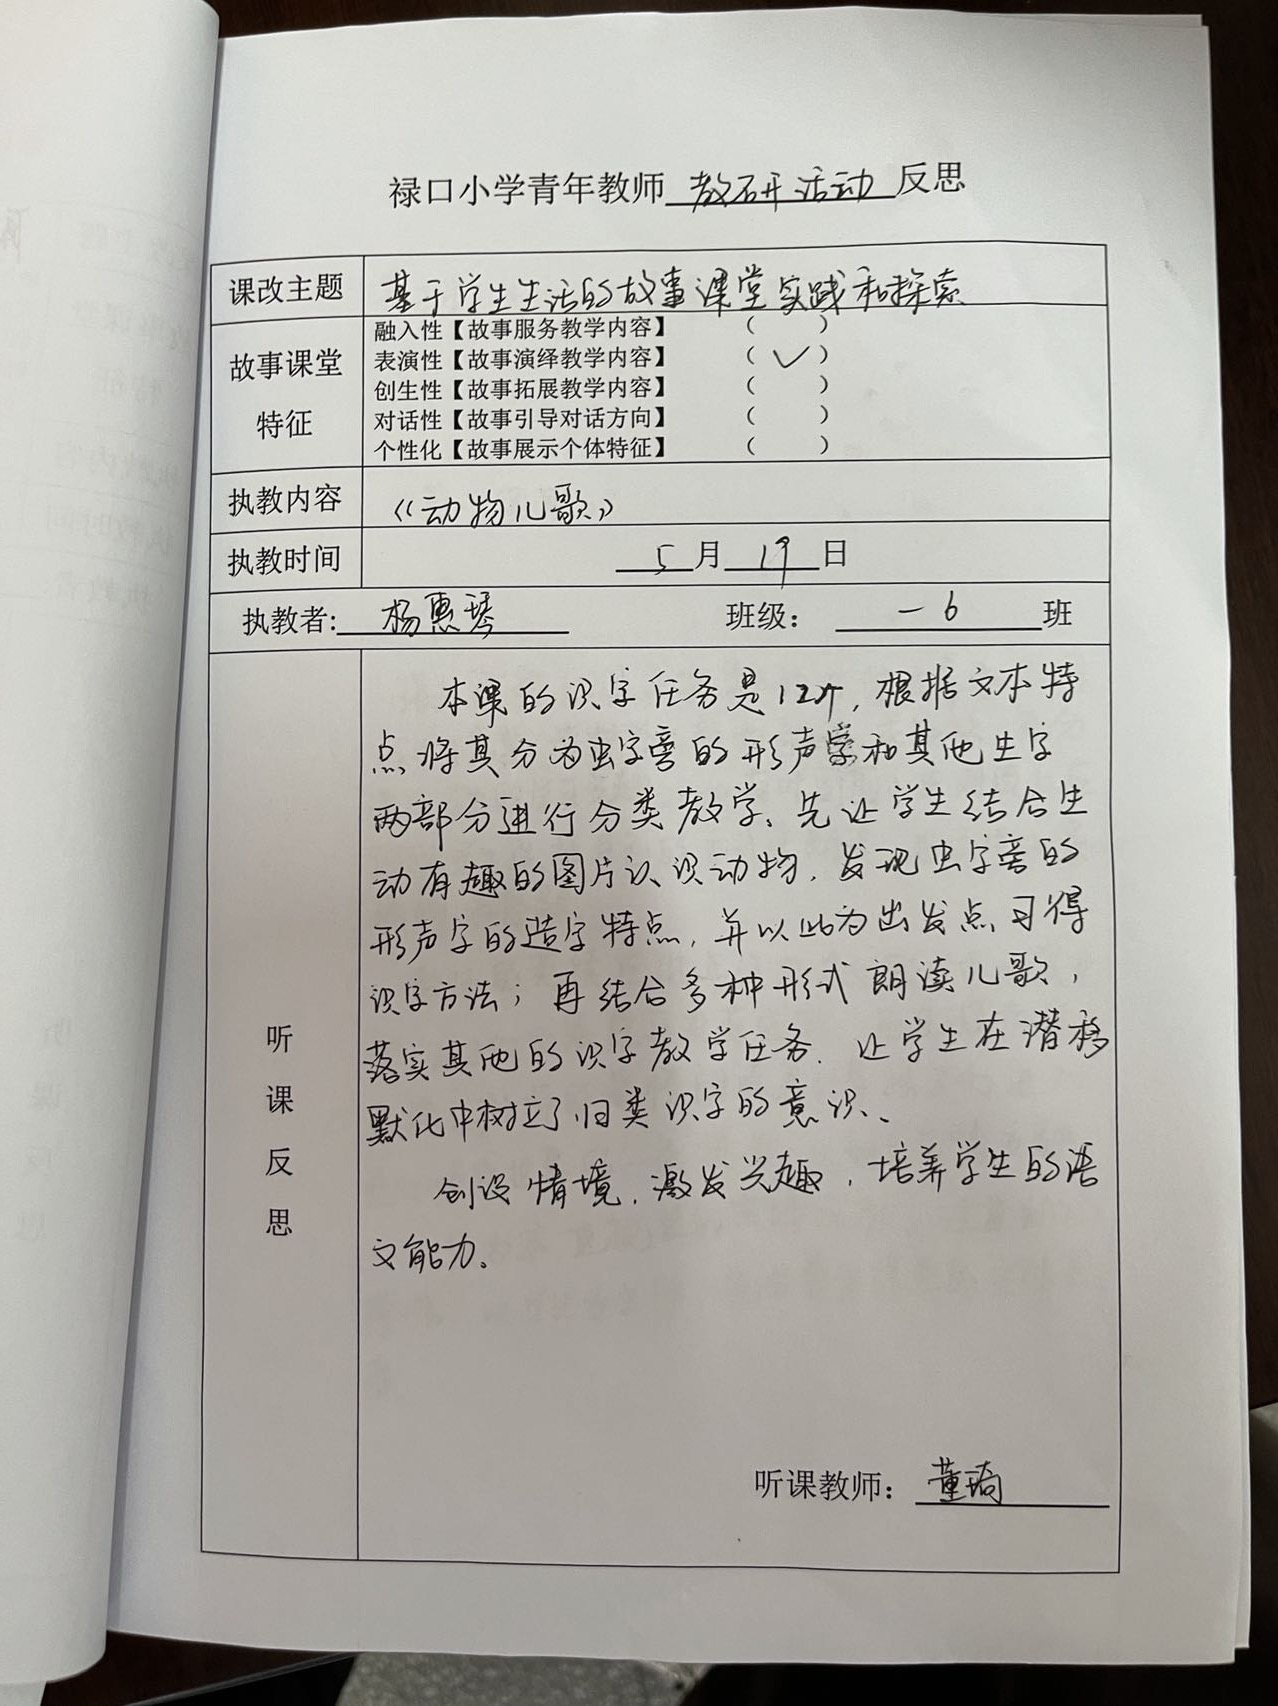 禄口小学青年教师 教研活动 反思
课改主题 基于学生生活的故事课堂实践和探索
故事课堂
特征
融入性【故事服务教学内容】 （ ）
表演性【故事演绎教学内容】 （ ✓ ）
创生性【故事拓展教学内容】 （ ）
对话性【故事引导对话方向】 （ ）
个性化【故事展示个体特征】 （ ）
执教内容 《动物儿歌》
执教时间 5月19日
执教者: 杨惠琴 班级： 一6 班
听
课
反
思
本课的识字任务是12个，根据文本特
点将其分为虫字旁的形声字和其他生字
两部分进行分类教学、先让学生结合生
动有趣的图片认识动物，发现虫字旁的
形声字的造字特点，并以此为出发点习得
识字方法；再结合多种形式朗读儿歌，
落实其他的识字教学任务．让学生在潜移
默化中树立了归类识字的意识、
创设情境，激发兴趣，培养学生的语
文能力。
听课教师： 董琦